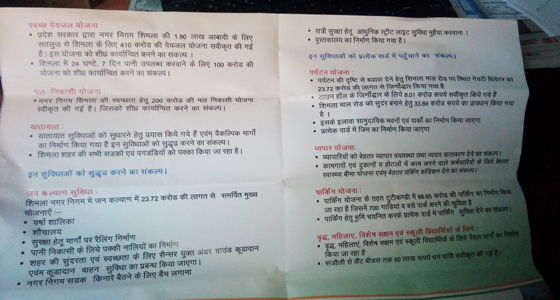 स्वच्छ पेयजल योजना :
• प्रदेश सरकार द्वारा नगर निगम शिमला की 1.90 लाख आबादी के लिए
सतलुज से शिमला के लिए 410 करोड की पेयजल योजना स्वीकृत की गई
है। इस योजना को शीघ्र कार्यान्वित करने का संकल्प।
• शिमला में 24 घण्टे, 7 दिन पानी उपलब्ध करवाने के लिए 100 करोड की
योजना को शीघ्र कार्यान्वित करने का संकल्प।
मल-निकासी योजना
• नगर निगम शिमला की स्वच्छता हेतू 200 करोड की मल निकासी योजना
स्वीकृत की गई है। जिसको शीघ्र कार्यान्वित करने का संकल्प।
यातायात :
• यातायात सुविधाओं को सुधारने हेतु प्रयास किये गये हैं एवंम वैकल्पिक मार्गो
का निर्माण किया गया है इन सुविधाओं को सुदृढ करने का संकल्प।
• शिमला शहर की सभी सडकों एवं पगडंडियों को पक्का किया जा रहा है।
इन सुविधाओं को सुदृढ करने का संकल्प।
जन कल्याण सुविधा :
शिमला नगर निगम में जन कल्याण में 23.72 करोड की लागत से समर्पित मुख्य
योजनाऐं :–
• वर्षा शालिका
• शौचालय
• सुरक्षा हेतू मार्गो पर रैलिंग निर्माण
• पानी निकासी के लिये पक्की नालियों का निर्माण
• शहर की सुंदरता एवं स्वच्छता के लिए सैन्सर युक्त अंडर ग्राउंड कूडादान
एवंम कूडादान वाहन सुविधा का प्रबन्ध किया जाएगा।
• नगर निगम सडक किनारे बैठने के लिए बैंच लगाना
• रात्री सुरक्षा हेतू आधुनिक स्ट्रीट लाइट सुविधा मुहैया करवाना।
• पुस्तकालय का निर्माण किया गया है।
इन सुविधाओं को प्रत्येक वार्ड में पहुँचाने का संकल्प।
पर्यटन योजना :
• पर्यटन की दृष्टि से बढावा देने हेतु शिमला माल रोड पर स्थित गेयटी थियेटर का
23.72 करोड की लागत से जिर्णोद्धार किया गया है।
• टाउन हॉल के जिर्णोद्धार के लिये 8.01 करोड रूपये स्वीकृत किये गये हैं
• शिमला माल रोड को सुदंर बनाने हेतु 33.89 करोड रूपये का प्रावधान किया गया
है।
• इसके इलावा सामुदायिक भवनों एवं पार्को का निर्माण किया जाएगा
• प्रत्येक वार्ड में जिम का निर्माण किया जाएगा
व्यापार योजना:
• व्यापारियों को बेहतर व्यापार व्यवस्था तथा व्यापार वातावरण देने का संकल्प।
• कामगारों एवं दुकानों व होटलों में काम करने वाले कर्मचारियों के लिये बेहतर
स्वास्थ्य बीमा योजना एवंम् बेहतर वर्किंग कंडिशन देने का संकल्प।
पार्किंग योजना :
• पार्किंग योजना के तहत टूटीकण्डी में 68.65 करोड की पार्किंग का निर्माण किया
जा रहा है जिसमें 700 गाडियां व बसे पार्क करने की सुविधा है
• पार्किंग हेतु भूमि चयनित करके प्रत्येक वार्ड में पार्किंग सुविधा देने का संकल्प।
वृद्ध, महिलाऐ, विशेष सक्षम एवं स्कूली विद्यार्थियो के लिये :
• वृद्ध, महिलाऐं, विशेष सक्षम एवं स्कूली विद्यार्थियों के लिये पैदल मार्गो का निर्माण
किया जा रहा है
• संजौली से सैंट बीडस तक 50 लाख रूपये धन राशि स्वीकृत की गई है।